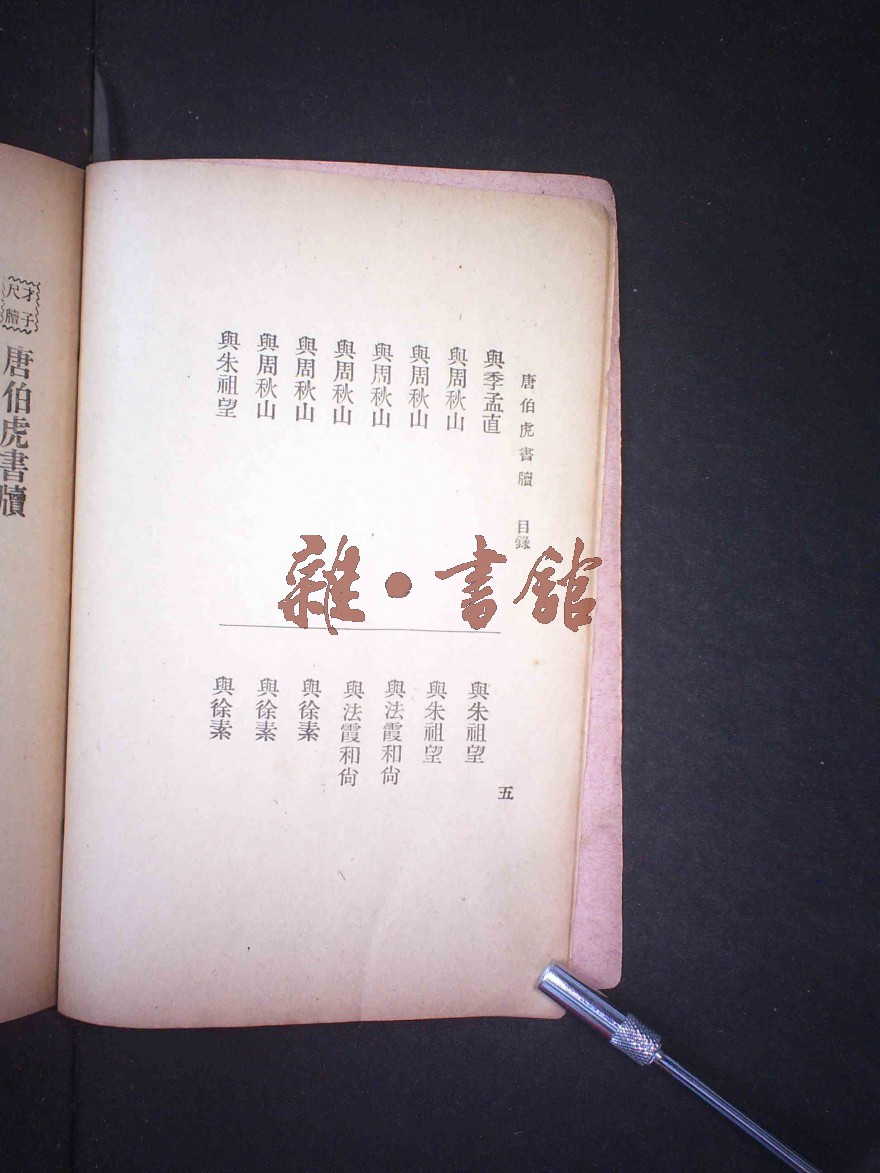 唐伯虎書牘 目錄
與季孟直
與周秋山
與周秋山
與周秋山
與周秋山
與周秋山
與周秋山
與朱祖望
與朱祖望
與朱祖望
與法霞和尙
與法霞和尙
與徐素
與徐素
與徐素
五
才子
尺牘
唐伯虎書牘
雜·書館